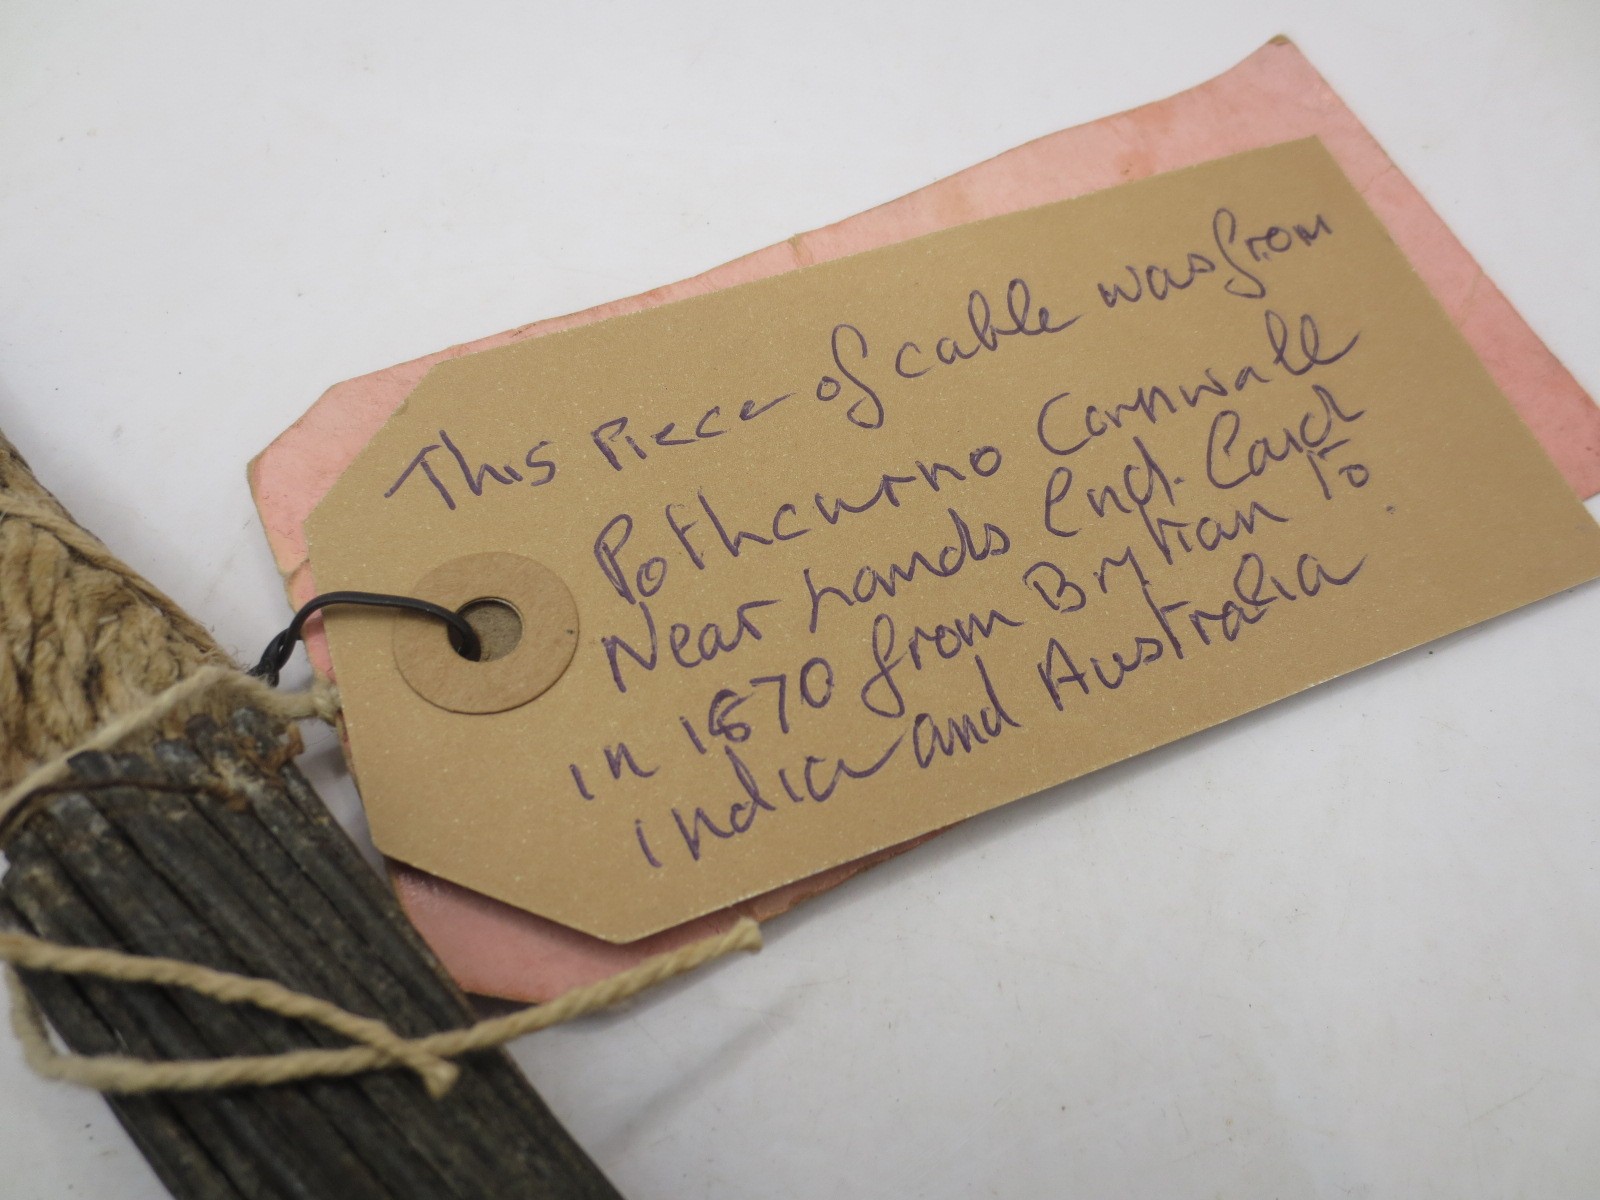 This Piece of cable was from
Pothcurno Cornwall
Near hands End. Laid
in 1870 from Brytian to
india and Australia